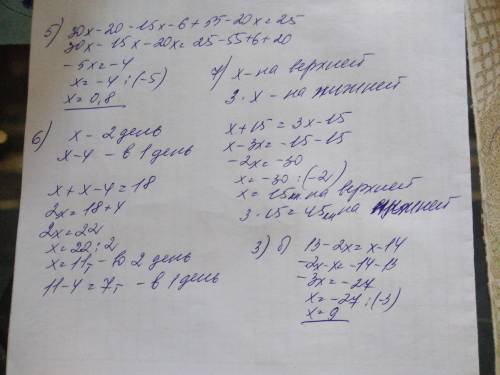 5) 30x-20-15x-6+55-20x=25
30x-15x-20x=25-55+6+20
-5x=-4
x=-4:(-5)
x=0,8
6) x - 2 день
x-4 - в 1 день
x+x-4=18
2x=18+4
2x=22
x=22:2
x=11 - во 2 день
11-4=7 - в 1 день
7) x - на верхней
3·x - на нижней
x+15=3x-15
x-3x=-15-15
-2x=-30
x=-30:(-2)
x=15 на верхней
3·15=45 на нижней
3) б) 13-2x=x-14
-2x-x=-14-13
-3x=-27
x=-27:(-3)
x=9